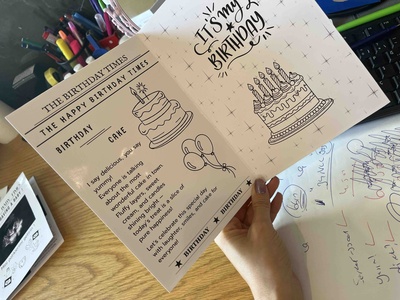 THE BIRTHDAY TIMES
THE HAPPY BIRTHDAY TIMES
BIRTHDAY CAKE
I say delicious, you say
yummy!
Everyone is talking
about the most
wonderful cake in town.
Fluffy layers, sweet
cream, and candles
shining bright –
today's treat is a slice of
pure happiness!
Let's celebrate this special day
with laughter, smiles, and cake for
everyone!
★ BIRTHDAY ★ BIRTHDAY ★
IT'S my
BIRTHDAY